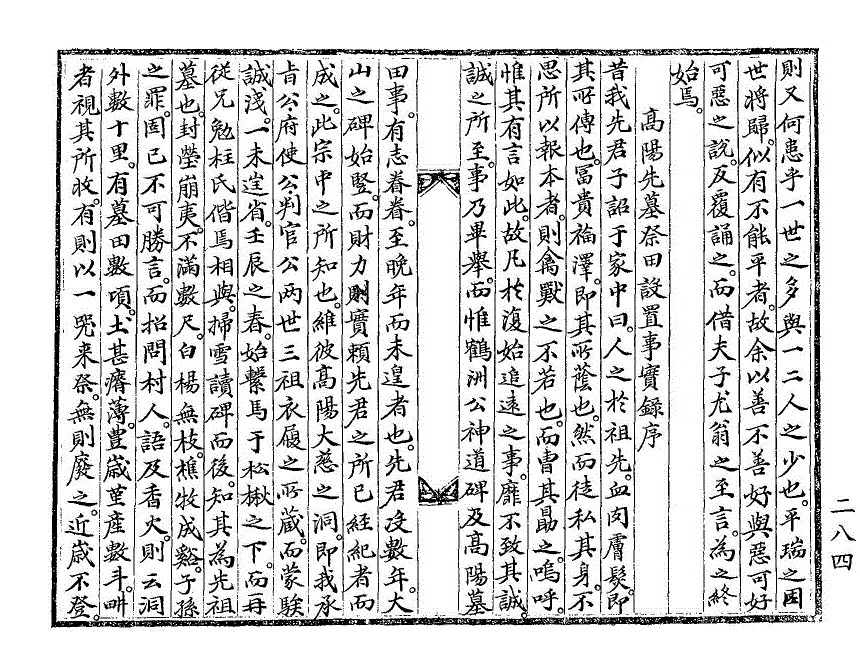 則又何患乎一世之多與一二人之少也。平瑞之固
世將歸。似有不能平者。故余以善不善好與惡可好
可惡之說。反覆誦之。而借夫子尤翁之至言。為之終
始焉。
高陽先墓祭田設置事實錄序
昔我先君子詔于家中曰。人之於祖先。血肉膚髮。即
其所傳也。冨貴福澤。即其所蔭也。然而徒私其身。不
思所以報本者。則禽獸之不若也。而曺其勖之。嗚呼。
惟其有言如此。故凡於復始追遠之事。靡不致其誠。
誠之所至。事乃畢舉。而惟鶴洲公神道碑及高陽墓
田事。有志眷眷。至晩年而未遑者也。先君沒數年。大
山之碑始竪。而財力則實賴先君之所已經紀者而
成之。此宗中之所知也。維彼高陽大慈之洞。即我承
旨公府使公判官公两世三祖衣履之所藏。而蒙騃
誠淺。一未遑省。壬辰之春。始繫馬于松楸之下。而再
從兄勉柱氏偕焉相與。掃雪讀碑而後。知其為先祖
墓也。封塋崩夷。不滿數尺。白楊無枝。樵牧成谿。子孫
之罪。固已不可勝言。而招問村人。語及香火。則云洞
外數十里。有墓田數頃。土甚瘠薄。豊歲菫産數斗。畊
者視其所收。有則以一兕来祭。無則廢之。近歲不登。
二八四